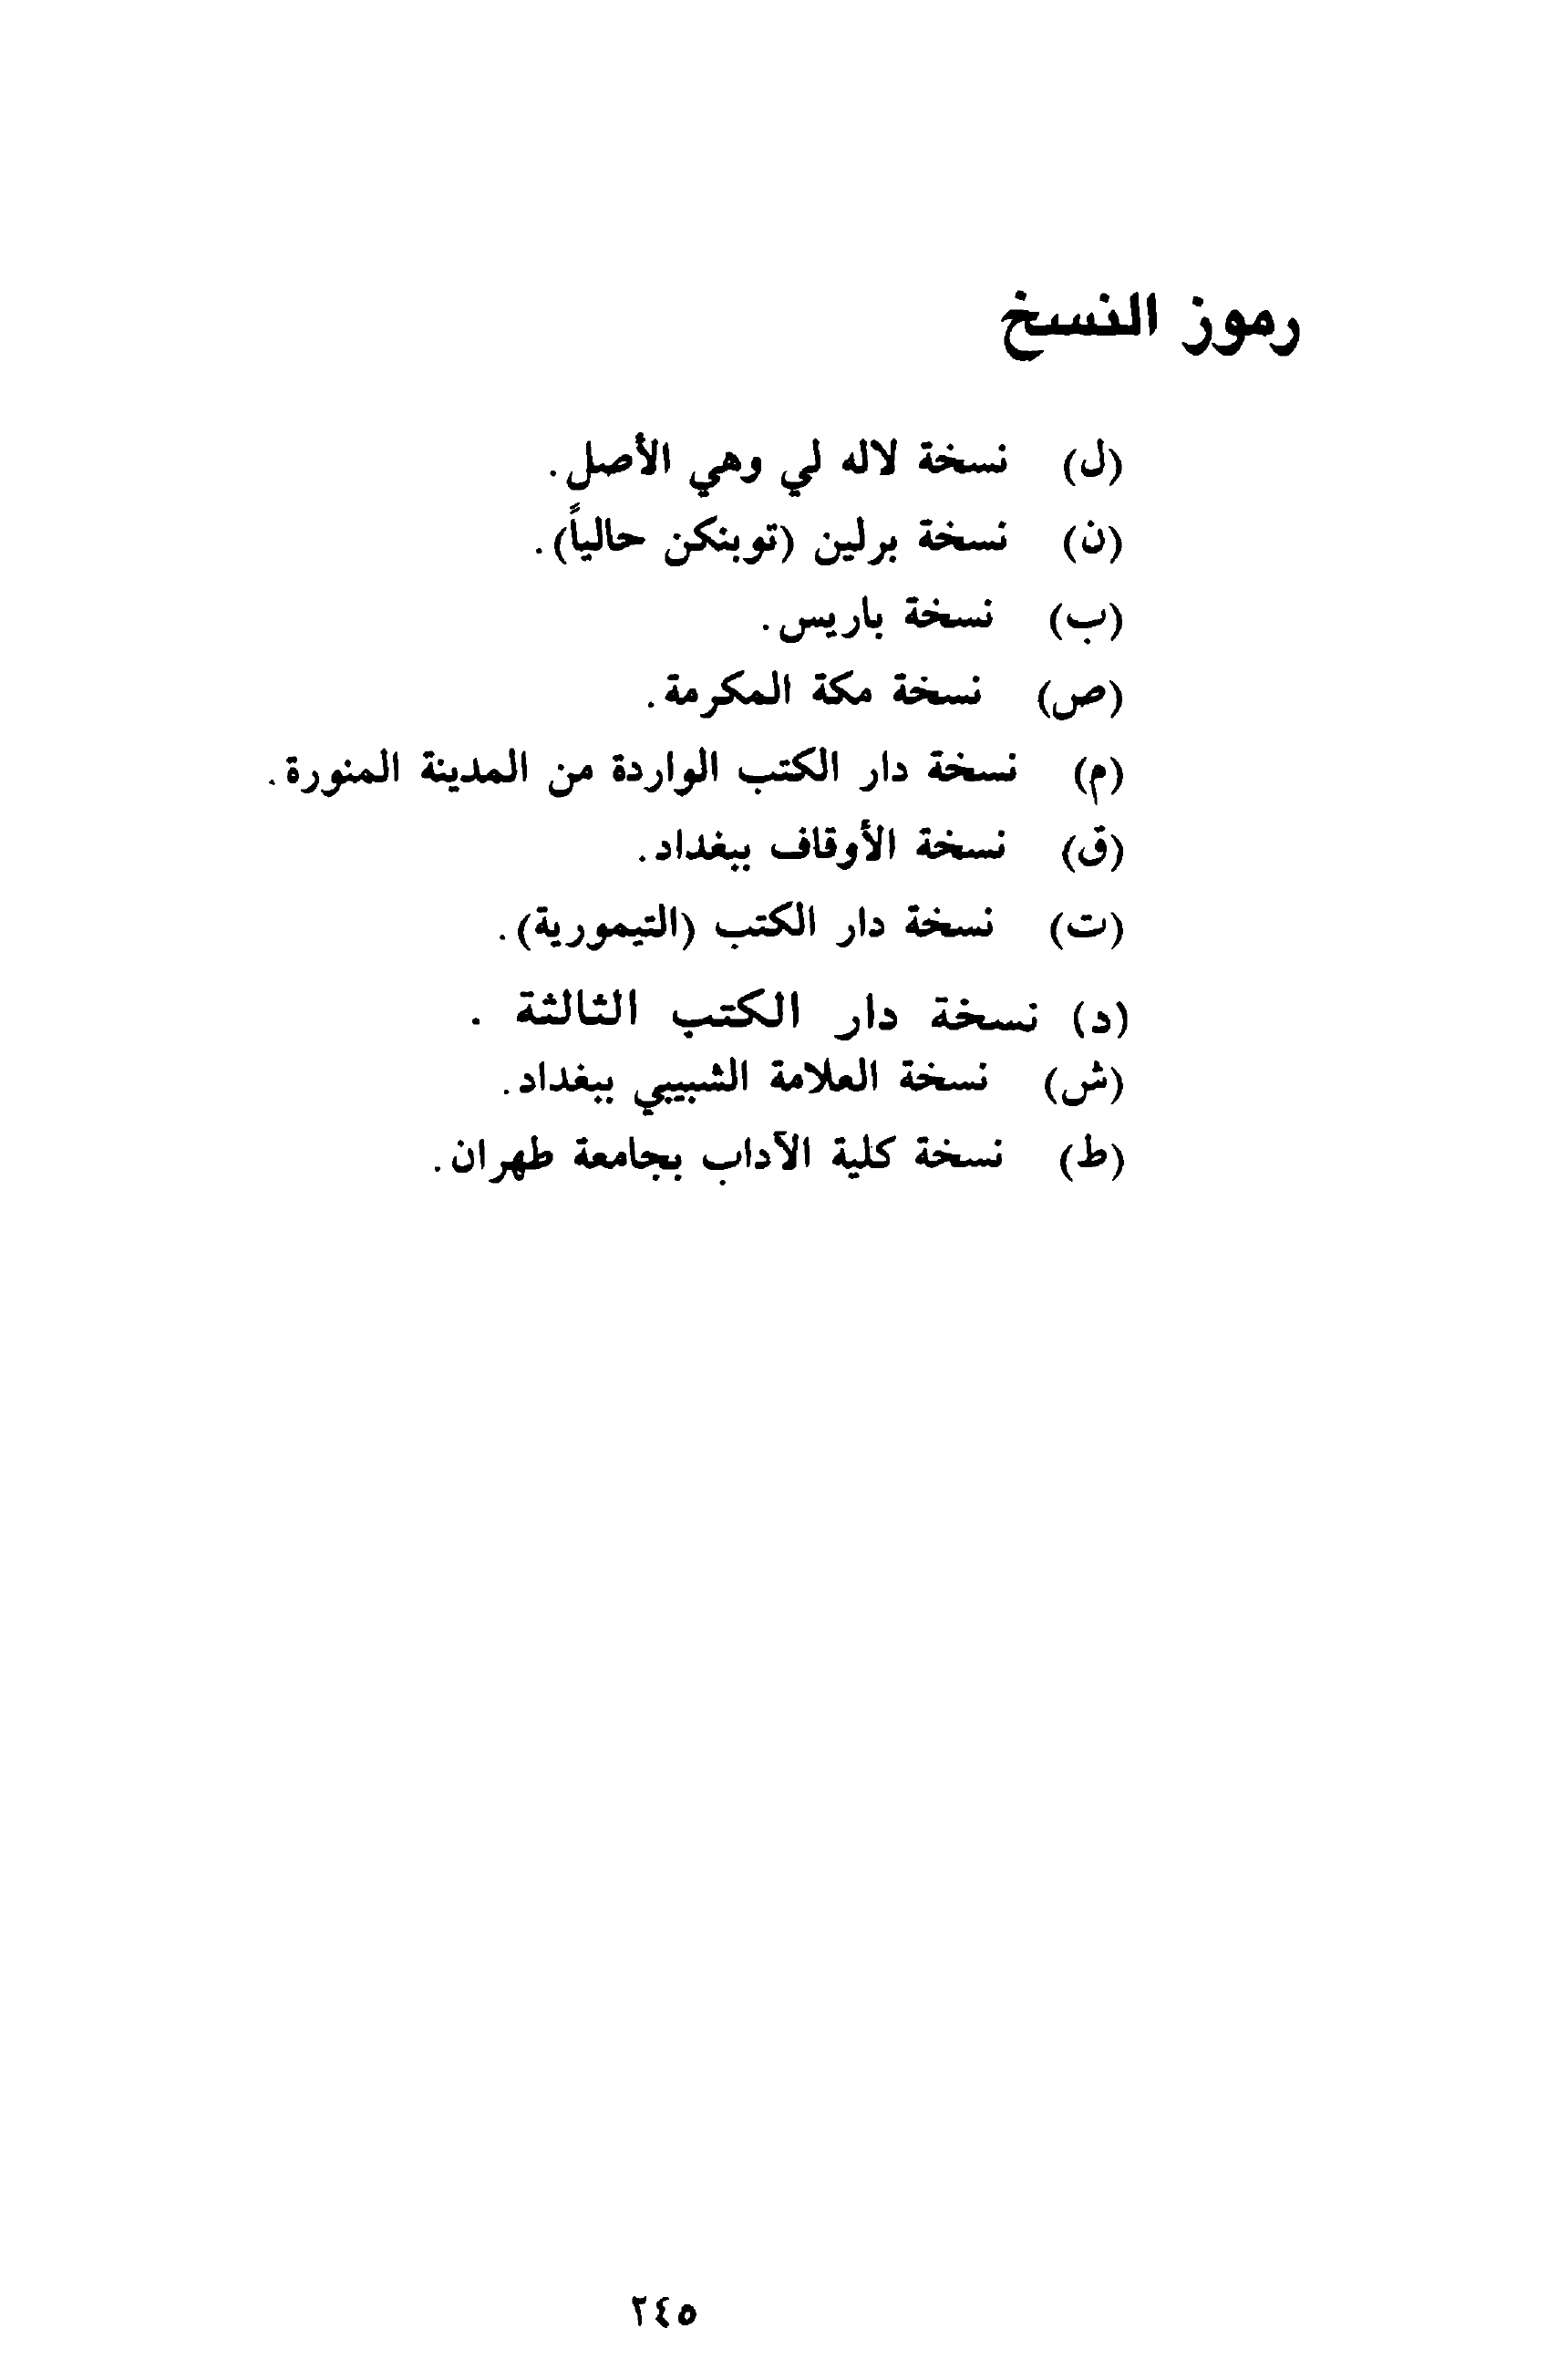 رموز النسخ
(ل) نسخة لاله لي وهي الأصل.
(ن) نسخة برلين (توبنكن حالياً).
(ب) نسخة باريس.
(ص) نسخة مكة المكرمة.
(م) نسخة دار الكتب الواردة من المدينة المنورة.
(ق) نسخة الأوقاف ببغداد.
(ت) نسخة دار الكتب (التيمورية).
(د) نسخة دار الكتب الثالثة .
(ش) نسخة العلامة الشبيبي ببغداد.
(ط) نسخة كلية الآداب بجامعة طهران.
٢٤٥